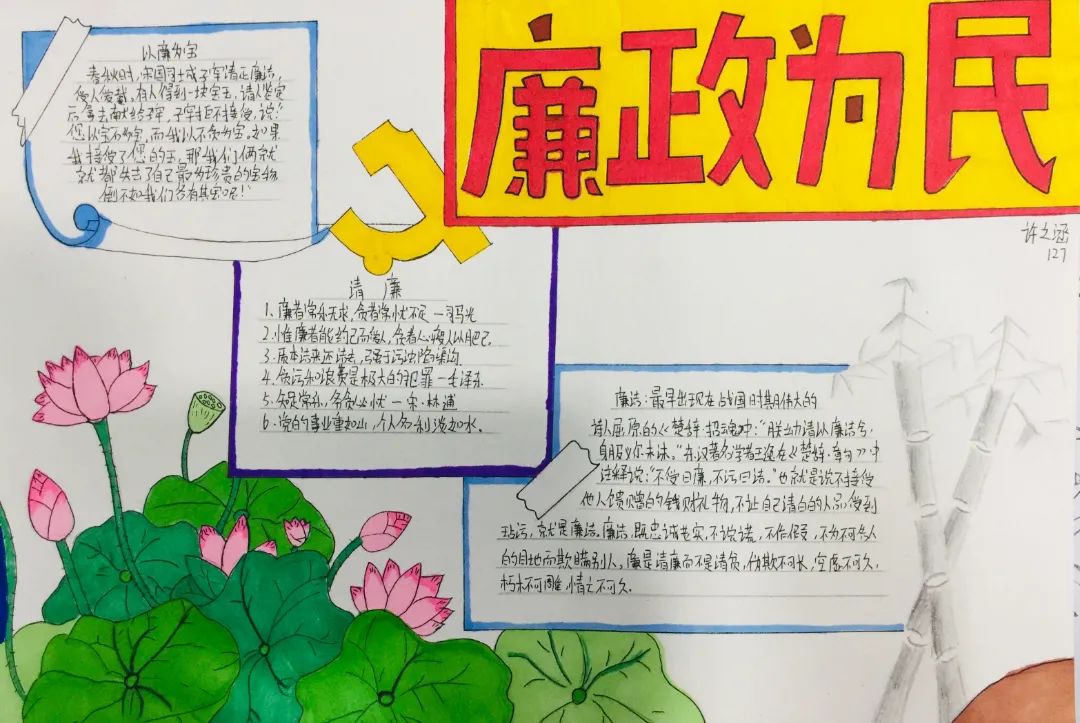 廉政为民
许之涵
127
以廉为宝
春秋时,宋国司士成子罕清正廉洁,
受人爱戴。有人得到一块宝玉,请人鉴定
后拿去献给子罕,子罕拒不接受,说:
您以宝石为宝,而我以不贪为宝。如果
我接受了您的玉,那我们俩就
就都失去了自己最为珍贵的宝物
倒不如我们各有其宝呢!"
清 廉
1、廉者常乐无求,贪者常忧不足 一司马光
2.惟廉者能约己而爱人,贪者必瘦人以肥己.
3、质本洁来还洁去,强于污淖陷渠沟.
4、贪污和浪费是极大的犯罪一毛泽东
5、知足常乐,务贪必忧 一 宋·林逋
6、党的事业重如山,个人名利淡如水.
廉洁:最早出现在战国时期伟大的
诗人屈原的《楚辞·招魂》中:"朕幼清以廉洁兮,
身服义尔未沬。"东汉著名学者王逸在《楚辞·章句》中
注释说:"不受曰廉,不污曰洁。"也就是说不接受
他人馈赠的钱财礼物,不让自己清白的人品受到
玷污,就是廉洁。廉洁,既忠诚老实,不说谎,不作假,不为不可告人
的目地而欺瞒别人。廉是清廉而不是清贫,伪欺不可长,空虚不可久,
朽木不可雕,情亡不可久.